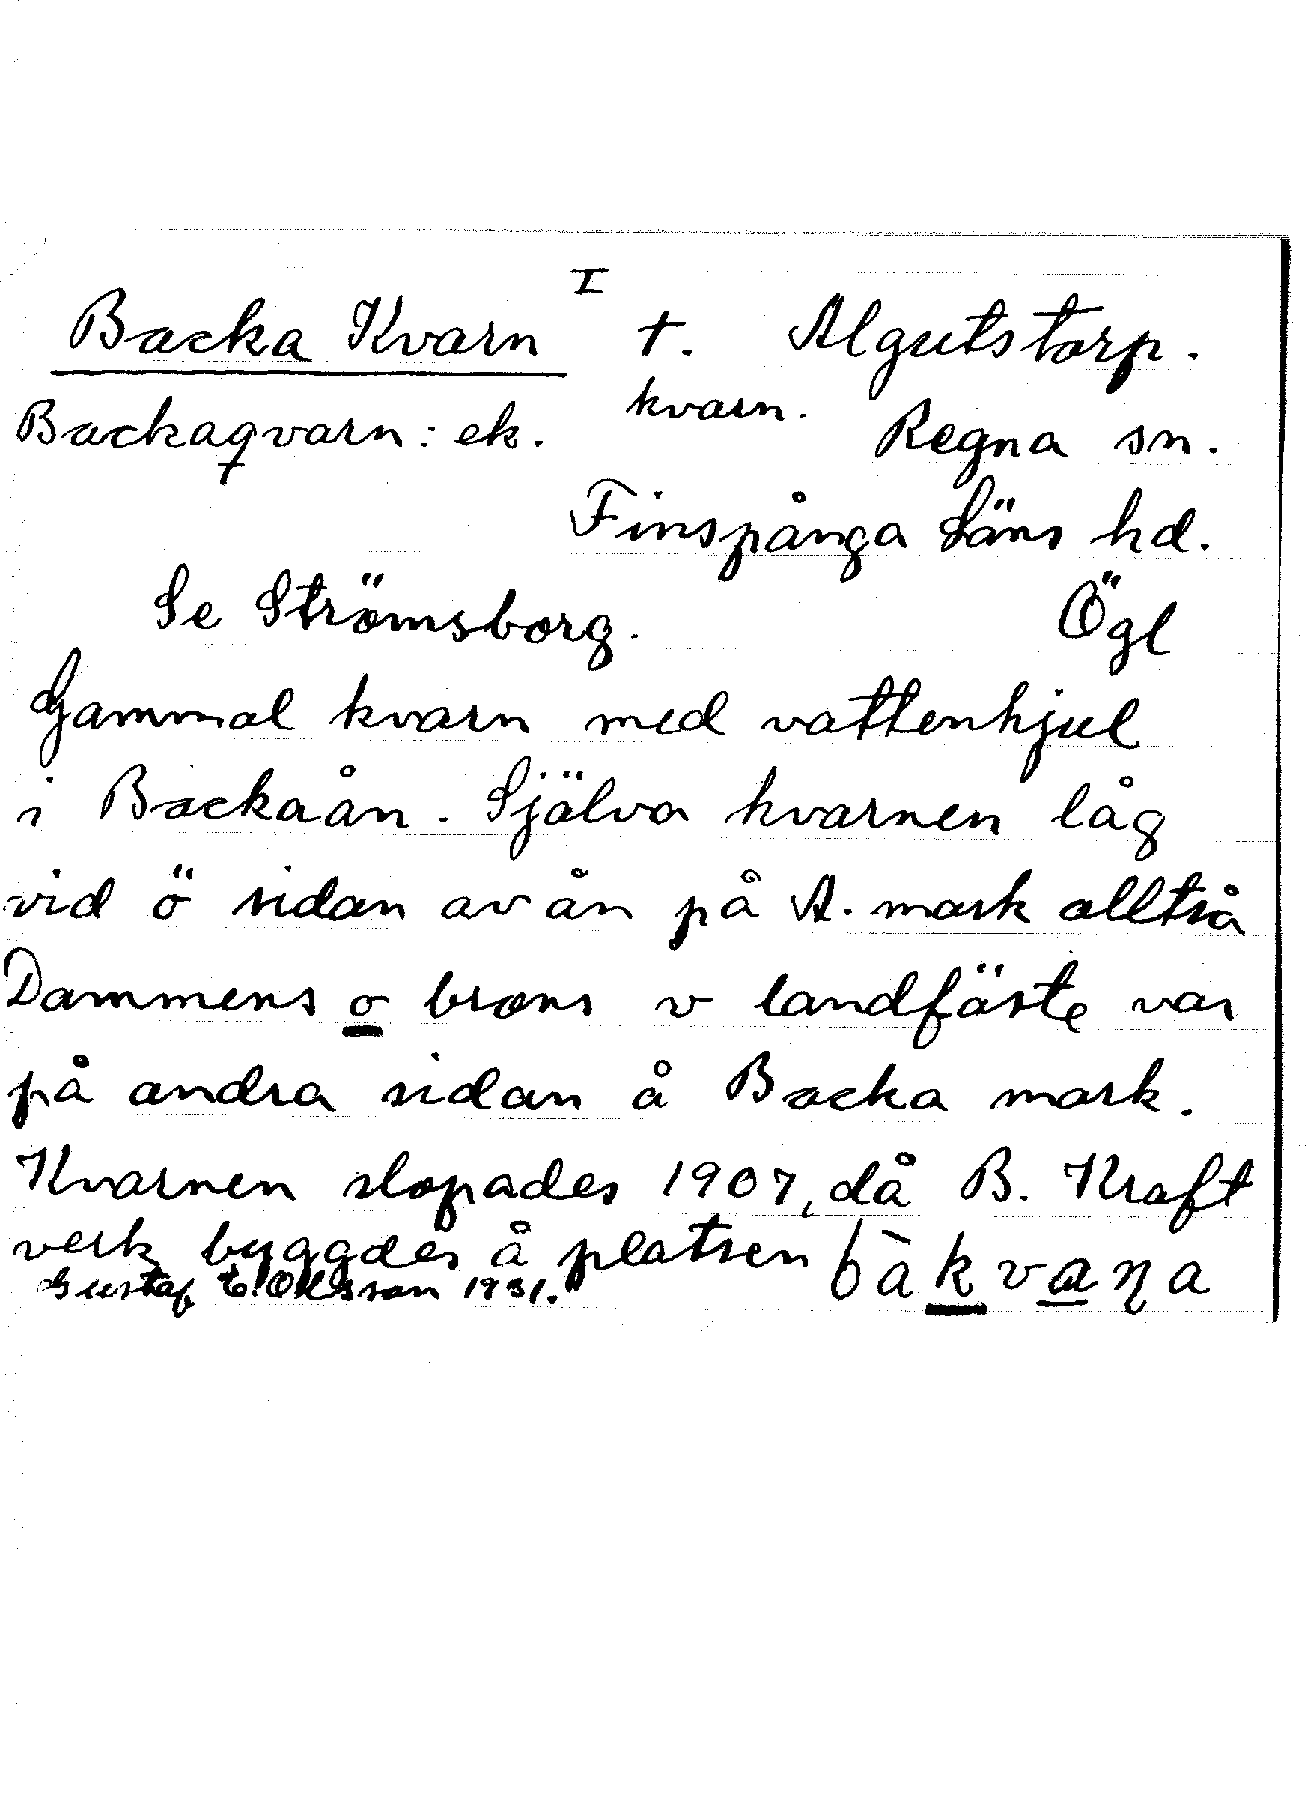 I
Backa Kvarn †. Algutstorp.
Backaqvarn: ek. kvarn. Regna sn.
Finspånga Läns hd.
Se Strömsborg. Ögl
Gammal kvarn med vattenhjul
i Backaån. Själva kvarnen låg
vid ö sidan av ån på A. mark alltså
Dammens o brons v landfäste var
på andra sidan å Backa mark.
Kvarnen slopades 1907, då B. Kraft
verk byggdes å platsen
Gustaf E. Olsson 1931.